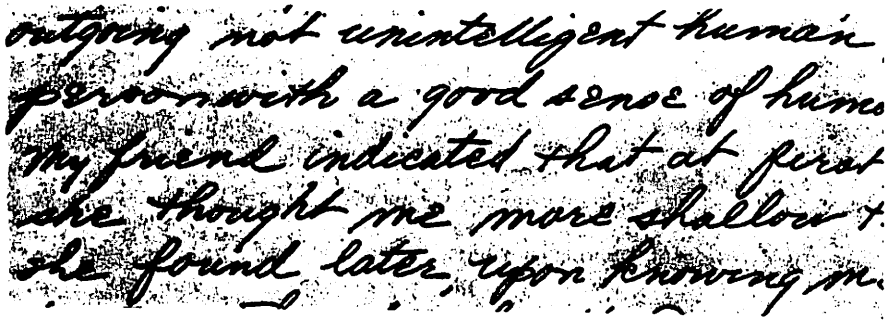 outgoing not unintelligent human
person with a good sense of humo
My friend indicated that at first
she thought me more shallow t
she found later, upon knowing m